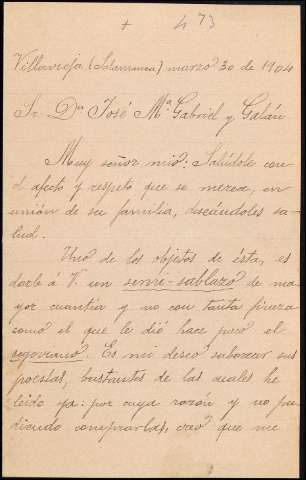 + 4 73
Villavieja (Salamanca) marzo 30 de 1904
Sr. Dn José Mª Gabriel y Galán
Muy señor mio: Salúdole con
el afecto y respeto que se merece, en
unión de su familia, deseándoles sa-
lud.
Uno de los objetos de ésta, es
darle á V. un semi-sablazo de ma-
yor cuantía y no con tanta finura
como el que le dió hace poco el
segoviano. Es mi deseo saborear sus
poesías, bastantes de las cuales he
leído ya: por cuya razón y no pu-
diendo comprarlas, creo que me